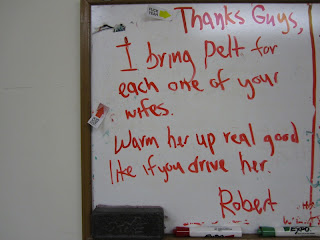 Thanks Guys,
I bring pelt for
each one of your
wifes.
Warm her up real good
like if you drive her.
Robert
EXPO